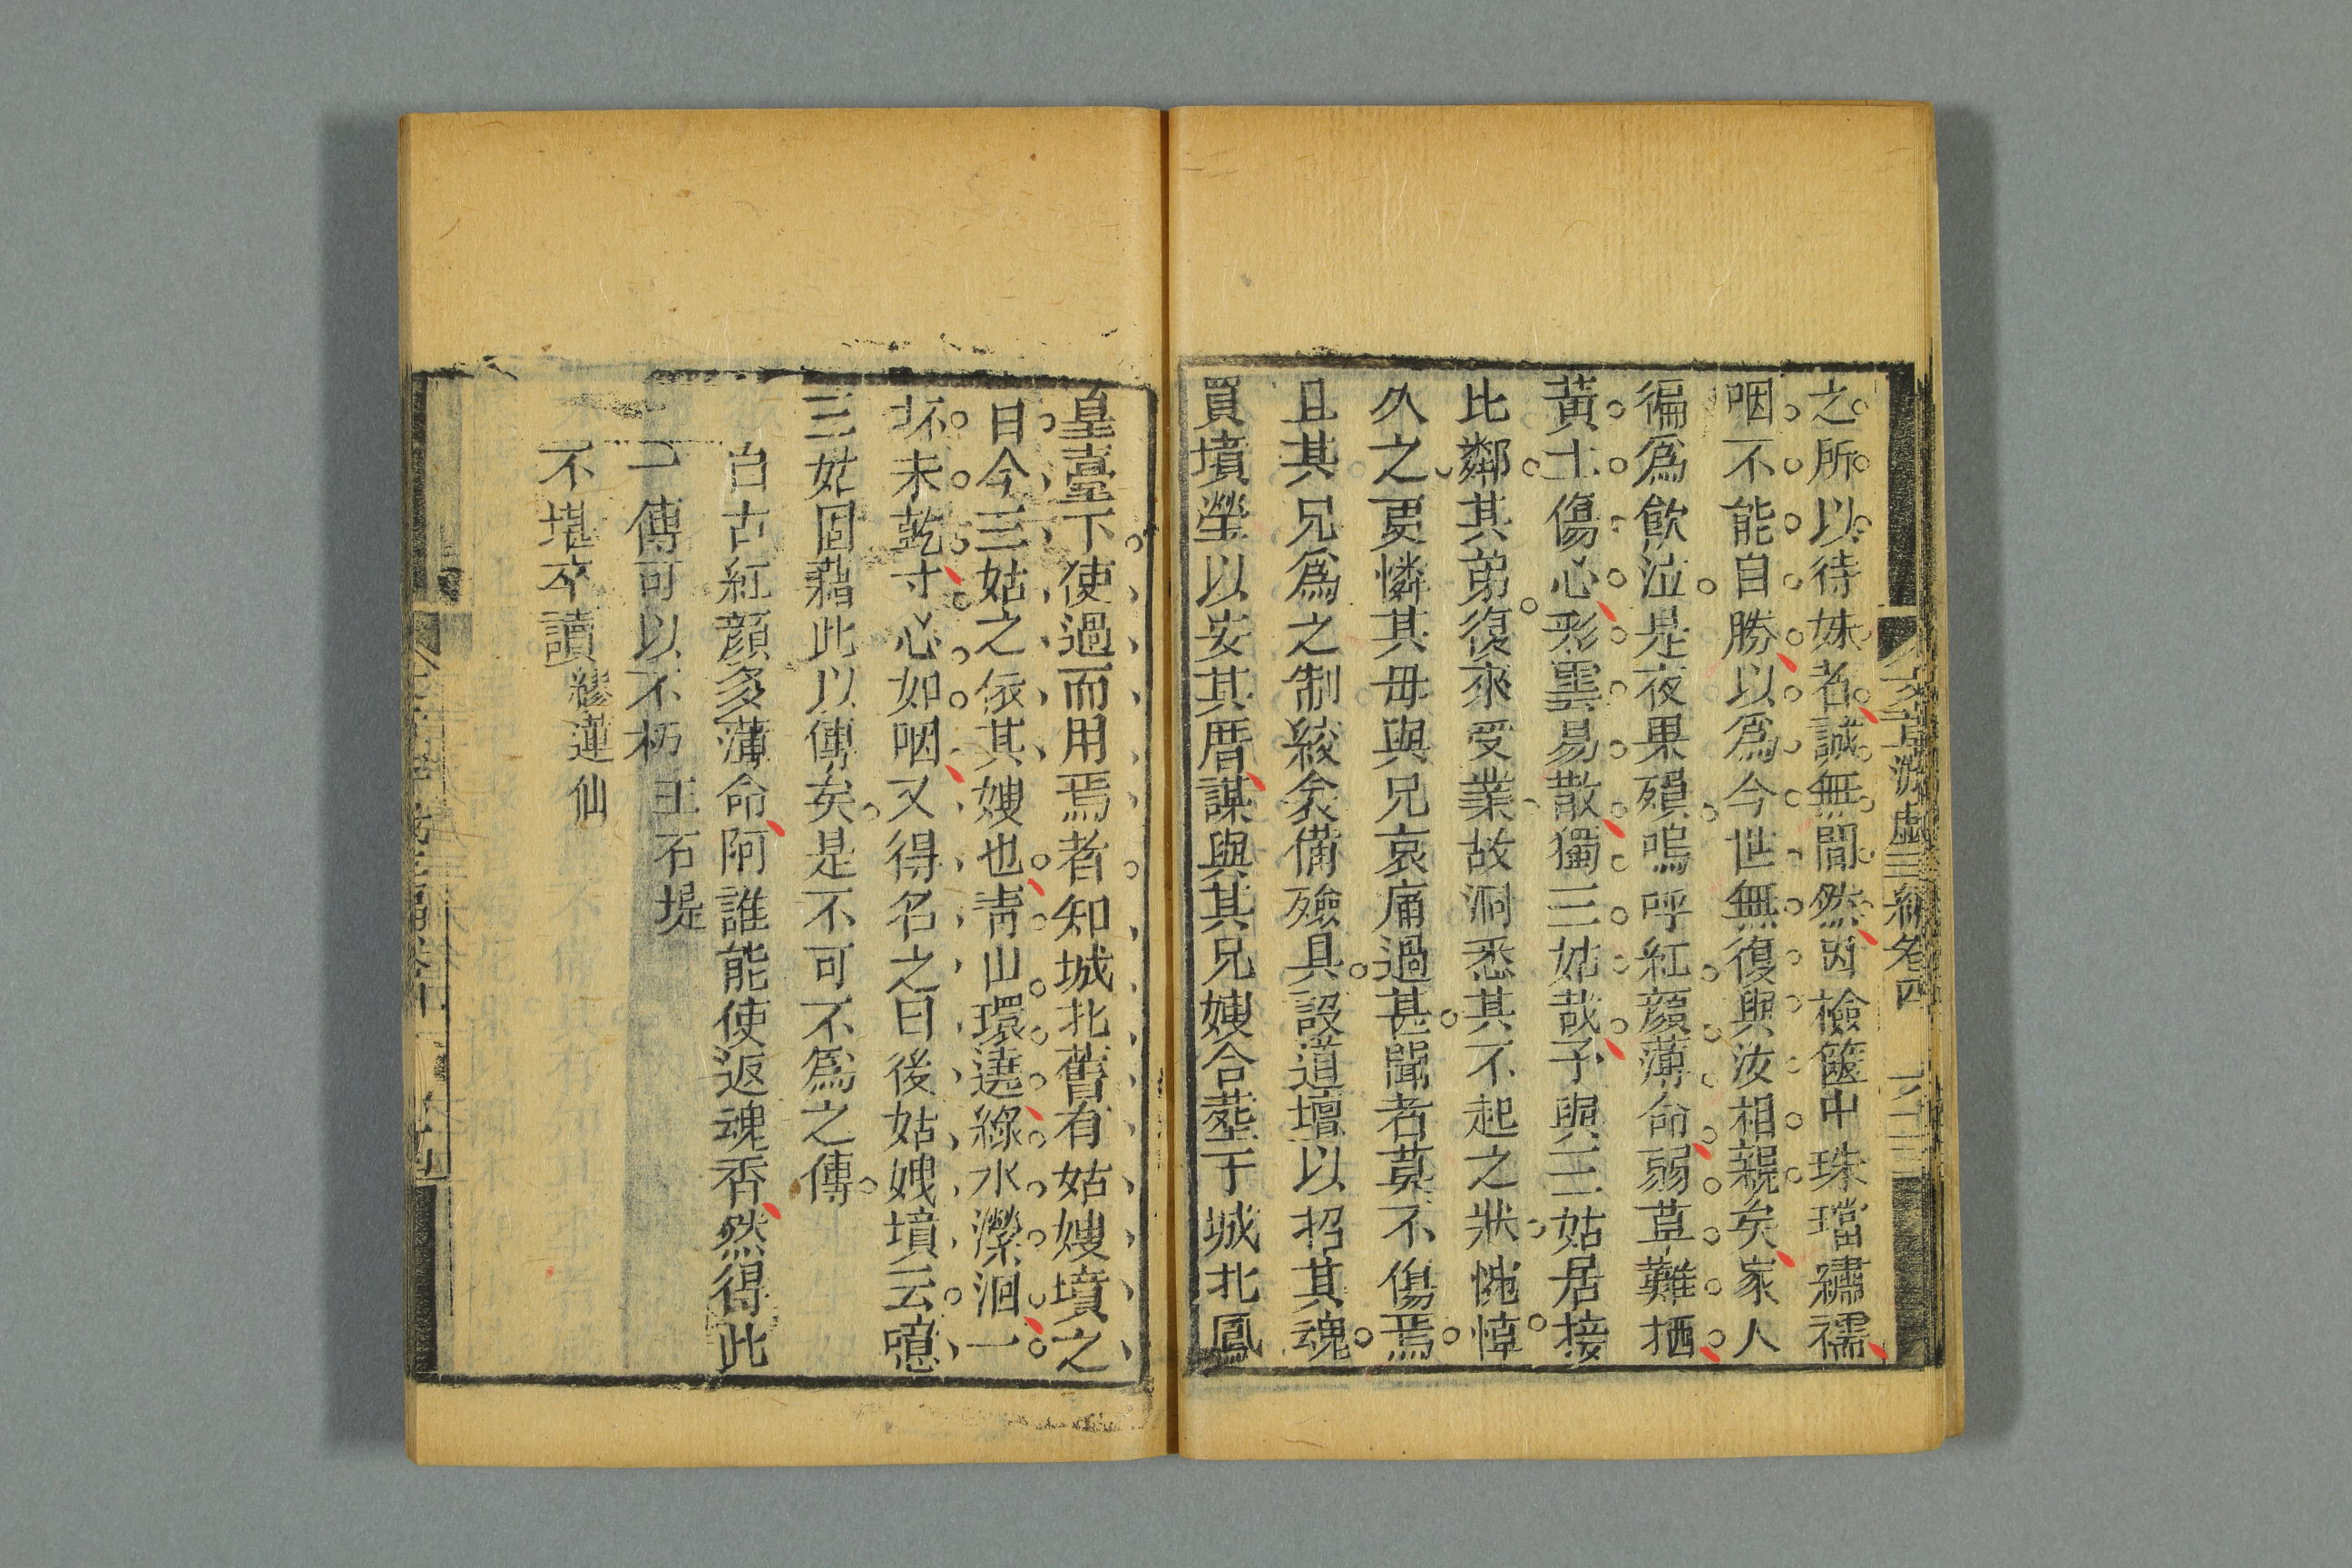 之所以待妹者誠無間然因檢篋中珠璫繡襦
咽不能自勝以爲今世無復與汝相親矣家人
徧爲飲泣是夜果殞嗚呼紅顔薄命弱草難栖
黃土傷心彩雲易散獨三姑哉予與三姑居接
比鄰其弟復來受業故洞悉其不起之狀惋悼
久之更憐其母與兄哀痛過甚聞者莫不傷焉
且其兄爲之制絞衾備殮具設道壇以招其魂
買墳塋以安其厝謀與其兄嫂合塟于城北鳳
皇臺下使過而用焉者知城北舊有姑嫂墳之
日今三姑之依其嫂也靑山環遶綠水瀠洄一
抔未乾寸心如咽又得名之曰後姑嫂墳云噫
三姑固藉此以傳矣是不可不爲之傳
自古紅顔多薄命阿誰能使返魂香然得此
一傳可以不朽 王石堤
不堪卒讀 繆蓮仙
文章游戲三編卷四